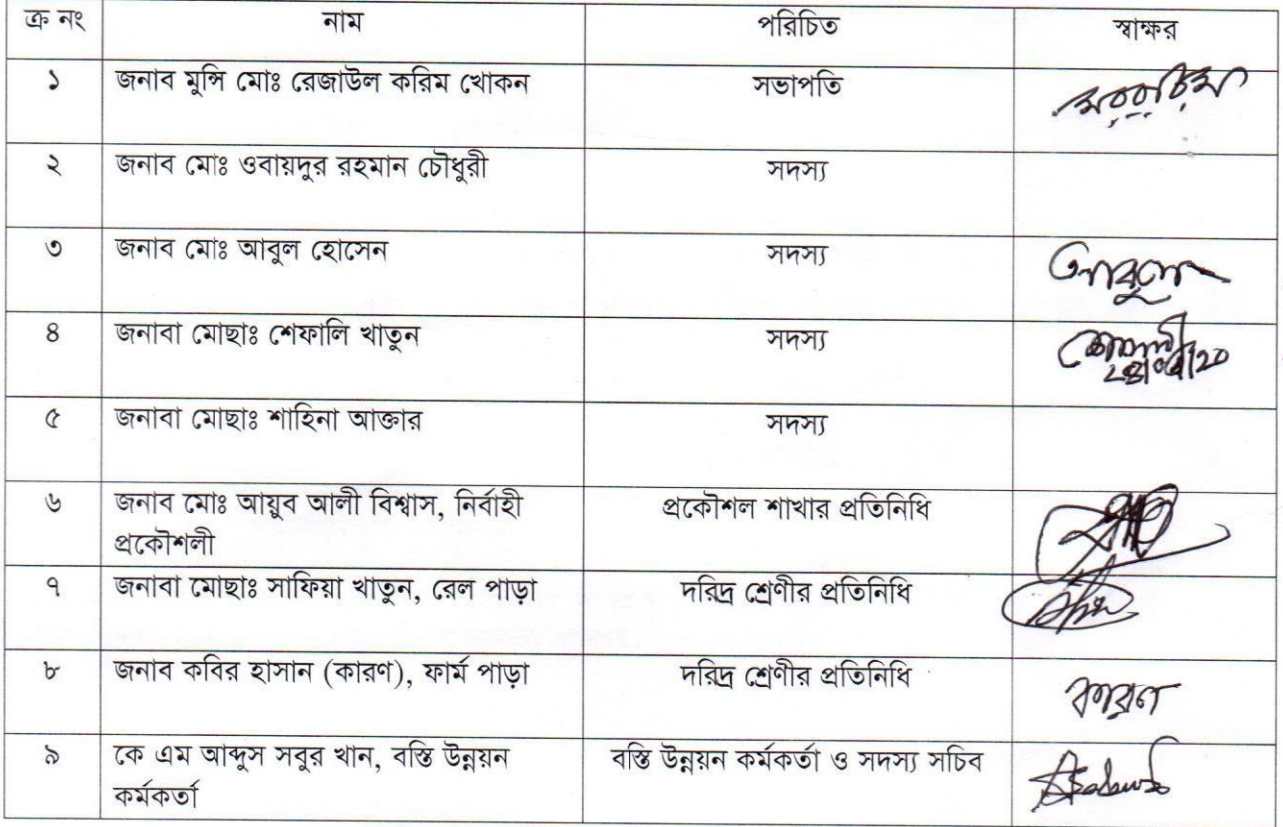 ক্র নং নাম পরিচিত স্বাক্ষর
১ জনাব মুন্সি মোঃ রেজাউল করিম খোকন সভাপতি
২ জনাব মোঃ ওবায়দুর রহমান চৌধুরী সদস্য
৩ জনাব মোঃ আবুল হোসেন সদস্য
৪ জনাবা মোছাঃ শেফালি খাতুন সদস্য
৫ জনাবা মোছাঃ শাহিনা আক্তার সদস্য
৬ জনাব মোঃ আয়ুব আলী বিশ্বাস, নির্বাহী প্রকৌশল শাখার প্রতিনিধি
প্রকৌশলী
৭ জনাবা মোছাঃ সাফিয়া খাতুন, রেল পাড়া দরিদ্র শ্রেণীর প্রতিনিধি
৮ জনাব কবির হাসান (কারণ), ফার্ম পাড়া দরিদ্র শ্রেণীর প্রতিনিধি কারণ
৯ কে এম আব্দুস সবুর খান, বস্তি উন্নয়ন বস্তি উন্নয়ন কর্মকর্তা ও সদস্য সচিব
কর্মকর্তা